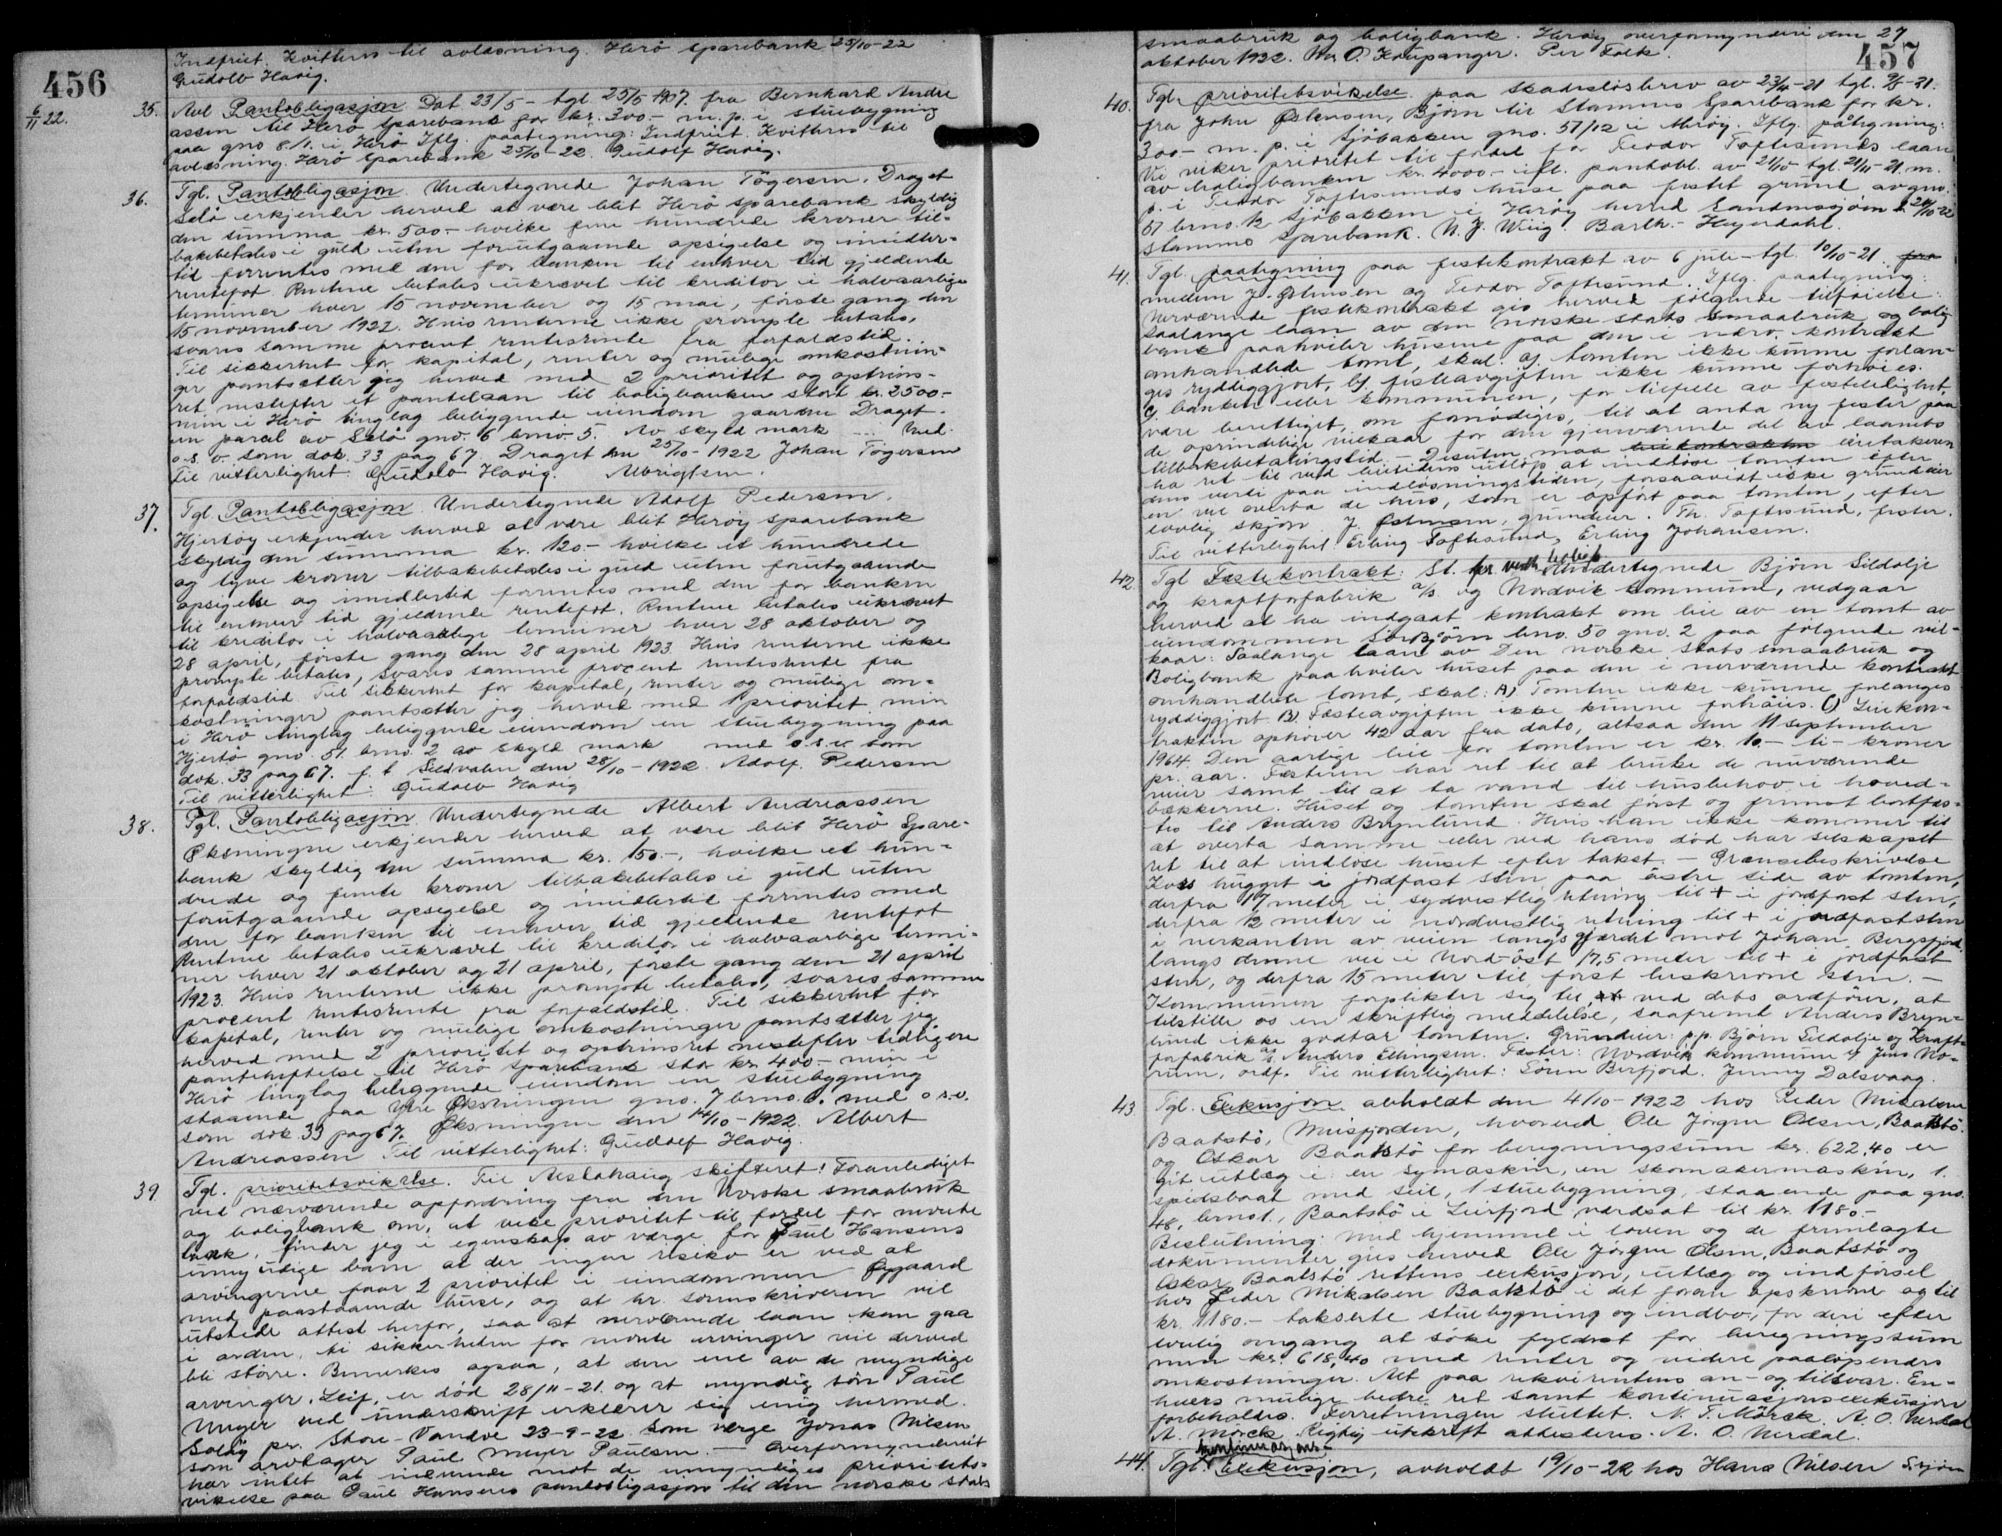 456
Indfriet. Kvitteres til avlæsning. Herö Sparebank 25/10-22
Gudolv Havig.
6/11 22.
35. Avl Pantobligasjon Dat 23/5 - tgl. 25/5 1907. fra Bernhard Andre
assen til Herö Sparebank for kr. 300.- m. p. i stuebygning
paa gno 8/1. i Herö Iflg. paategning: Indfriet. Kvitteres til
avlæsning. Herö Sparebank 25/10-22. Gudolf Havig.
36. Tgl. Pantobligasjon. Undertegnede Johan Tögersen, Draget
Selö erkjender herved at være blit Herö Sparebank skyldig
den summa kr. 500.- hvilke fem hundrede kroner til-
bakebetales i guld uten forutgaaende opsigelse og imidler-
tid forrentes med den for banken til enhver tid gjeldende
rentefot Rentene betales ukrævet til kreditor i halvaarlige
terminer hver 15 november og 15 mai, förste gang den
15 november 1922. Hvis renterne ikke prompte betales,
svares samme procent rentesrente fra forfaldstid.
Til sikkerhet for kapital, renter og mulige omkostnin-
ger pantsætter jeg herved med 2 prioritet og optrins-
ret nestefter et pantelaan til boligbanken stort kr. 2500.-
min i Herö tinglag beliggende eiendom gaarden Draget.
en parcel av Selö gno. 6 brno. 5. Av skyld mark ... Med.
o.s.v. som dok. 33 pag 67. Draget den 25/10-1922 Johan Tögersen
Til vitterlighet: Gudolv Havig. Albrigtsen.
37. Tgl. Pantobligasjon. Undertegnede Adolf Pedersen.
Hjertöy erkjender herved at være blit Heröy Sparebank
skyldig den summa kr. 120.- hvilke et hundrede
og tyve kroner tilbakebetales i guld uten forutgaaende
opsigelse og imidlertid forrentes med den for banken
til enhver tid gjeldende rentefot. Rentene betales ukrævet
til kreditor i halvaarlige terminer hver 28 oktober og
28 april, förste gang den 28 april 1923. Hvis renterne ikke
prompte betales, svares samme procent rentesrente fra
forfaldstid. Til sikkerhet for kapital, renter og mulige om-
kostninger pantsætter jeg herved med 1 prioritet min
i Herö tinglag beliggende eiendom en stuebygning paa
Hjertö gno. 51. brno. 2 av skyld mark med o.s.v. som
dok. 33 pag 67. f. t. Seldvalen den 28/10-1922. Adolf. Pedersen
Til vitterlighet: Gudolv Havig
38. Tgl. Pantobligasjon. Undertegnede Albert Andreassen
Öksningne erkjender herved at være blit Herö Spare-
bank skyldig den summa kr. 150.-, hvilke et hun-
drede og femti kroner tilbakebetales i guld uten
forutgaaende opsigelse og imidlertid forrentes med
den for banken til enhver tid gjeldende rentefot
Rentene betales ukrævet til kreditor i halvaarlige termi-
ner hver 21 oktober og 21 april, förste gang den 21 april
1923. Hvis renterne ikke prompte betales, svares samme
procent rentesrente fra forfaldstid. Til sikkerhet for
kapital, renter og mulige omkostninger pantsætter jeg
herved med 2 prioritet og optrinsret nestefter tidligere
panteheftelse til Herö Sparebank stor kr. 400.- min i
Herö tinglag beliggende eiendom en stuebygning
staaende paa Ytre Öksningen gno. 7 brno. 6. med o.s.v.
som dok. 33 pag 67. Öksningen den 14/10-1922. Albert
Andreassen Til vitterlighet: Gudolf Havig.
39. Tgl. prioritetsvikelse. Til Alstahaug skifteret! Foranlediget
ved nærværende opfordring fra den Norske smaabruk
og boligbank om, at vike prioritet til fordel for nævnte
bank, finder jeg i egenskap av værge for Paul Hansens
umyndige barn at der ingen risiko er ved at
arvingerne faar 2 prioritet i eiendommen
med paastaaende huse, og at hr. sorenskriveren vil
utstede attest herfor, saa at nærværende laan kan gaa
i orden, ti sikkerheten for nævnte arvinger vil derved
bli större. Bemerkes ogsaa, at den ene av de myndige
arvinger, Leif, er död 28/11-21. og at myndig sön Paul
Meyer ved underskrift erklærer sig enig hermed.
Solöy pr. Store-Vandve 23-9-22 som verge Jonas Nilsen
som arvtager Paul Meyer Paulsen. - Overformynderiet
har intet at indvende mot de umyndiges prioritets-
vikelse paa Paul Hansens pantobligasjon til den norske stats
457
smaabruk og boligbank. Heröy overformynderi den 27
oktober 1922. Chr. O. Kaupanger. Per Falk.
40. Tgl. prioritetsvikelse paa skadeslösbrev av 23/4-21 tgl. 3/5-21.
fra John Östensen, Björn til Stamnes Sparebank for kr.
300.- m. p. i Sjöbakken gno. 57/12 i Heröy. Iflg. påtegning:
Vi viker prioritet til fordel for Teodor Toftesunds laan
av boligbanken kr. 4000.- ifl. pantobl. av 21/10 tgl. 21/11-21. m.
p. i Teodor Toftesunds huse paa festet grund av gno.
57 brno. 12 Sjöbakken i Heröy herred Sandnessjöen d. 24/10-22
Stamnes Sparebank. N. J. Wiig Barth. Heyerdahl.
41. Tgl. paategning paa festekontrakt av 6 juli - tgl. 10/10-21. fra
mellem J. Östensen og Teodor Toftesund. Iflg. paategning:
Nærværende festekontrakt gis herved følgende tilföielse:
Saalange laan av den norske stats smaabruk og bolig
bank paahviler husene paa den i nærv. kontrakt
omhandlede tomt, skal: a) tomten ikke kunne forlan-
ges ryddiggjort, b) festeavgiften ikke kunne forhöies.
c) banken eller kommunen, for tilfelle av festeledighet,
være berettiget, om fornödiges, til at anta ny fester paa
de oprindelige vilkaar for den gjenværende del av laanets
tilbakebetalingstid. - Desuten maa leiekontrakten leietakeren
ha ret til ved leietidens utlöp at indlöse tomten efter
dens verdi paa indlösningstiden, forsaavidt ikke grundeier
en vil overta de hus, som er opfört paa tomten, efter
lovlig skjön J. Östensen, grundeier. Th. Toftesund, fester.
Til vitterlighet: Erling Toftesund, Erling Johansen.
42. Tgl Festekontrakt: St. Undertegnede Björn Sildolje
og kraftforfabrik a/s. og Nordvik kommune, vedgaar
herved at ha indgaat kontrakt om leie av en tomt av
eiendommen Sör Björn brno. 50 gno. 2 paa følgende vil-
kaar: Saalange laan av Den norske stats smaabruk og
Boligbank paahviler huset paa den i nærværende kontrakt
omhandlede tomt, skal: A) Tomten ikke kunne forlanges
ryddiggjort. B) Festeavgiften ikke kunne forhöies. C) Leiekon-
trakten ophører 42 aar fra dato, altsaa den 11 september
1964. Den aarlige leie for tomten er kr. 10.- ti - kroner
pr. aar. Festeren har ret til at bruke de nuværende
veier samt til at ta vand til husbehov i hoved-
bækkerne. Huset og tomten skal först og fremst bortfes-
tes til Anders Brynlund. Hvis han ikke kommer til
at overta samme eller ved hans död har selskapet
ret til at indlöse huset efter takst. - Grænsebeskrivelse
Kors hugget i jordfast sten paa östre side av tomten,
derfra 17 meter i sydvestlig retning til + i jordfast sten,
derfra 12 meter i nordvestlig retning til + i jordfast sten
i nerkanten av veien langs gjærdet mot Johan Bergsfjord
langs denne vei i Nord-öst 17,5 meter til + i jordfast
sten, og derfra 15 meter til først beskrevne sten. -
Kommunen forplikter sig til, ved dets ordförer, at
tilstille os en skriftlig meddelelse, saafremt Anders Bryn-
lund ikke godtar tomten. Grundeier: pp. Björn Sildolje og Kraft-
forfabrik a/s. Anders Ellingsen. Fæster: Nordvik kommune v/ Jens No-
rum, ordf. Til vitterlighet: Sören Berfjord. Jenny Dalsvaag.
43 Tgl. Eksekusjon avholdt den 4/10-1922 hos Peder Mikalsen
Baatstö, Meisfjorden, hvorved Ole Jörgen Olsen, Baatstö.
og Oskar Baatstö for beregningssum kr. 622,40 er
git utlæg i: en symaskin, en skomakermaskin, 1.
spidsbaat med seil, 1 stuebygning staaende paa gno.
48, brno 1., Baatstö i Leirfjord værdsat til kr. 1180.-
Beslutning: Med hjemmel i loven og de fremlagte
dokumenter gies herved Ole Jörgen Olsen, Baatstö og
Oskar Baatstö rettens eksekusjon, utlæg og indförsel
hos Peder Mikalsen Baatstö i det foran opskrevne og til
kr. 1180.- takserte stuebygning og indbo, for deri efter
lovlig omgang at söke fyldest for beregningssum
men kr. 618,40 med renter og videre paalöpendes
omkostninger. Alt paa rekvirentens an- og tilsvar. En-
hvers mulige bedre ret samt kontinuasjonseksekusjon
forbeholdes. Forretningen sluttet. N. T. Mörck. A. O. Nerdal
A. Mörck. Rigtig utskrift attesteres. A. O. Nerdal.
kontinuasjons-
44. Tgl. Eksekusjon, avholdt 19/10-22 hos Hans Nilsen Sijön